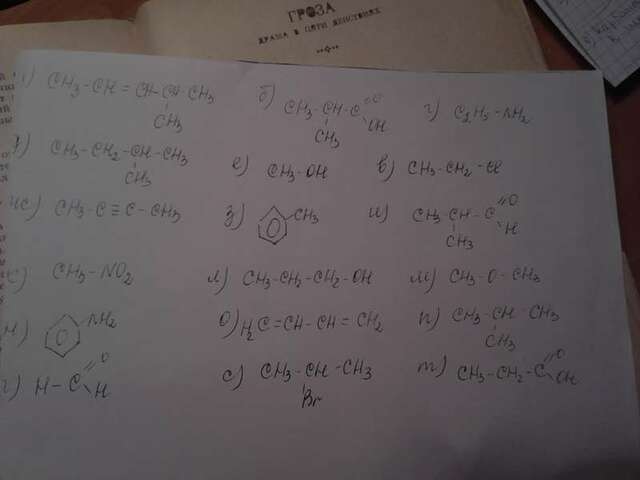 ГРОЗА
ДРАМА В ПЯТИ ДЕЙСТВИЯХ
CH3-CH=CH-CH-CH3
CH3
б) CH3-CH-C=O
OH
CH3
г) C2H5-NH2
CH3-CH2-CH-CH3
CH3
е) CH3-OH
в) CH3-CH2-Cl
ж) CH3-C≡C-CH3
з) CH3
и) CH3-CH-C=O
H
CH3
CH3-NO2
л) CH3-CH2-CH2-OH
м) CH3-O-CH3
н) NH2
о) H2C=CH-CH=CH2
п) CH3-CH-CH3
CH3
H-C=O
H
с) CH3-CH-CH3
Br
т) CH3-CH2-C=O
OH